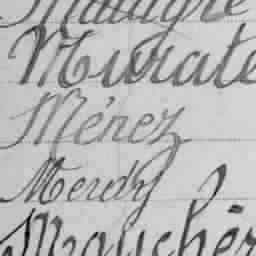 Malaigre
Murate
Ménez
Merdy
Mauchér